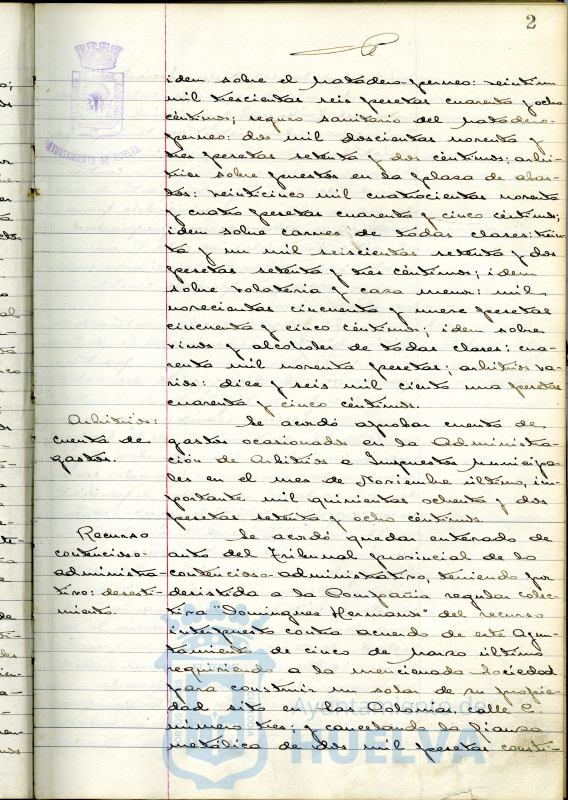 2
AYUNTAMIENTO DE HUELVA
idem sobre el matadero-perneo: veintiun
mil trescientas seis pesetas cuarenta y ocho
céntimos; seguro sanitario del matadero-
perneo: dos mil doscientas noventa y
tres pesetas setenta y dos céntimos; arbi-
trios sobre puestos en la plaza de abas-
tos: veinticinco mil cuatrocientas noventa
y cuatro pesetas cuarenta y cinco céntimos;
idem sobre carnes de todas clases: trein-
ta y un mil seiscientas setenta y dos
pesetas setenta y tres céntimos; idem
sobre volateria y caza menor: mil
novecientas cincuenta y nueve pesetas
cincuenta y cinco céntimos; idem sobre
vinos y alcoholes de todas clases: cua-
renta mil noventa pesetas; arbitrios va-
rios: diez y seis mil ciento una pesetas
cuarenta y cinco céntimos.
Arbitrios:
cuenta de
gastos.
Se acordó aprobar cuenta de
gastos ocasionados en la Administra-
ción de Arbitrios e Impuestos municipa-
les en el mes de Noviembre último, im-
portante mil quinientas ochenta y dos
pesetas setenta y ocho céntimos.
Recurso
contencioso-
administra-
tivo: desesti-
miento.
Se acordó quedar enterado de
auto del Tribunal provincial de lo
contencioso-administrativo, teniendo por
desistida a la Compañia regular colec-
tiva "Dominguez Hermanos" del recurso
interpuesto contra acuerdo de este Ayun-
tamiento de cinco de Marzo último
requiriendo a la mencionada Sociedad
para construir un solar de su propie-
dad sito en las Colonias, calle C.
número tres; y cancelando la fianza
metálica de dos mil pesetas consti-
Ayuntamiento de
HUELVA